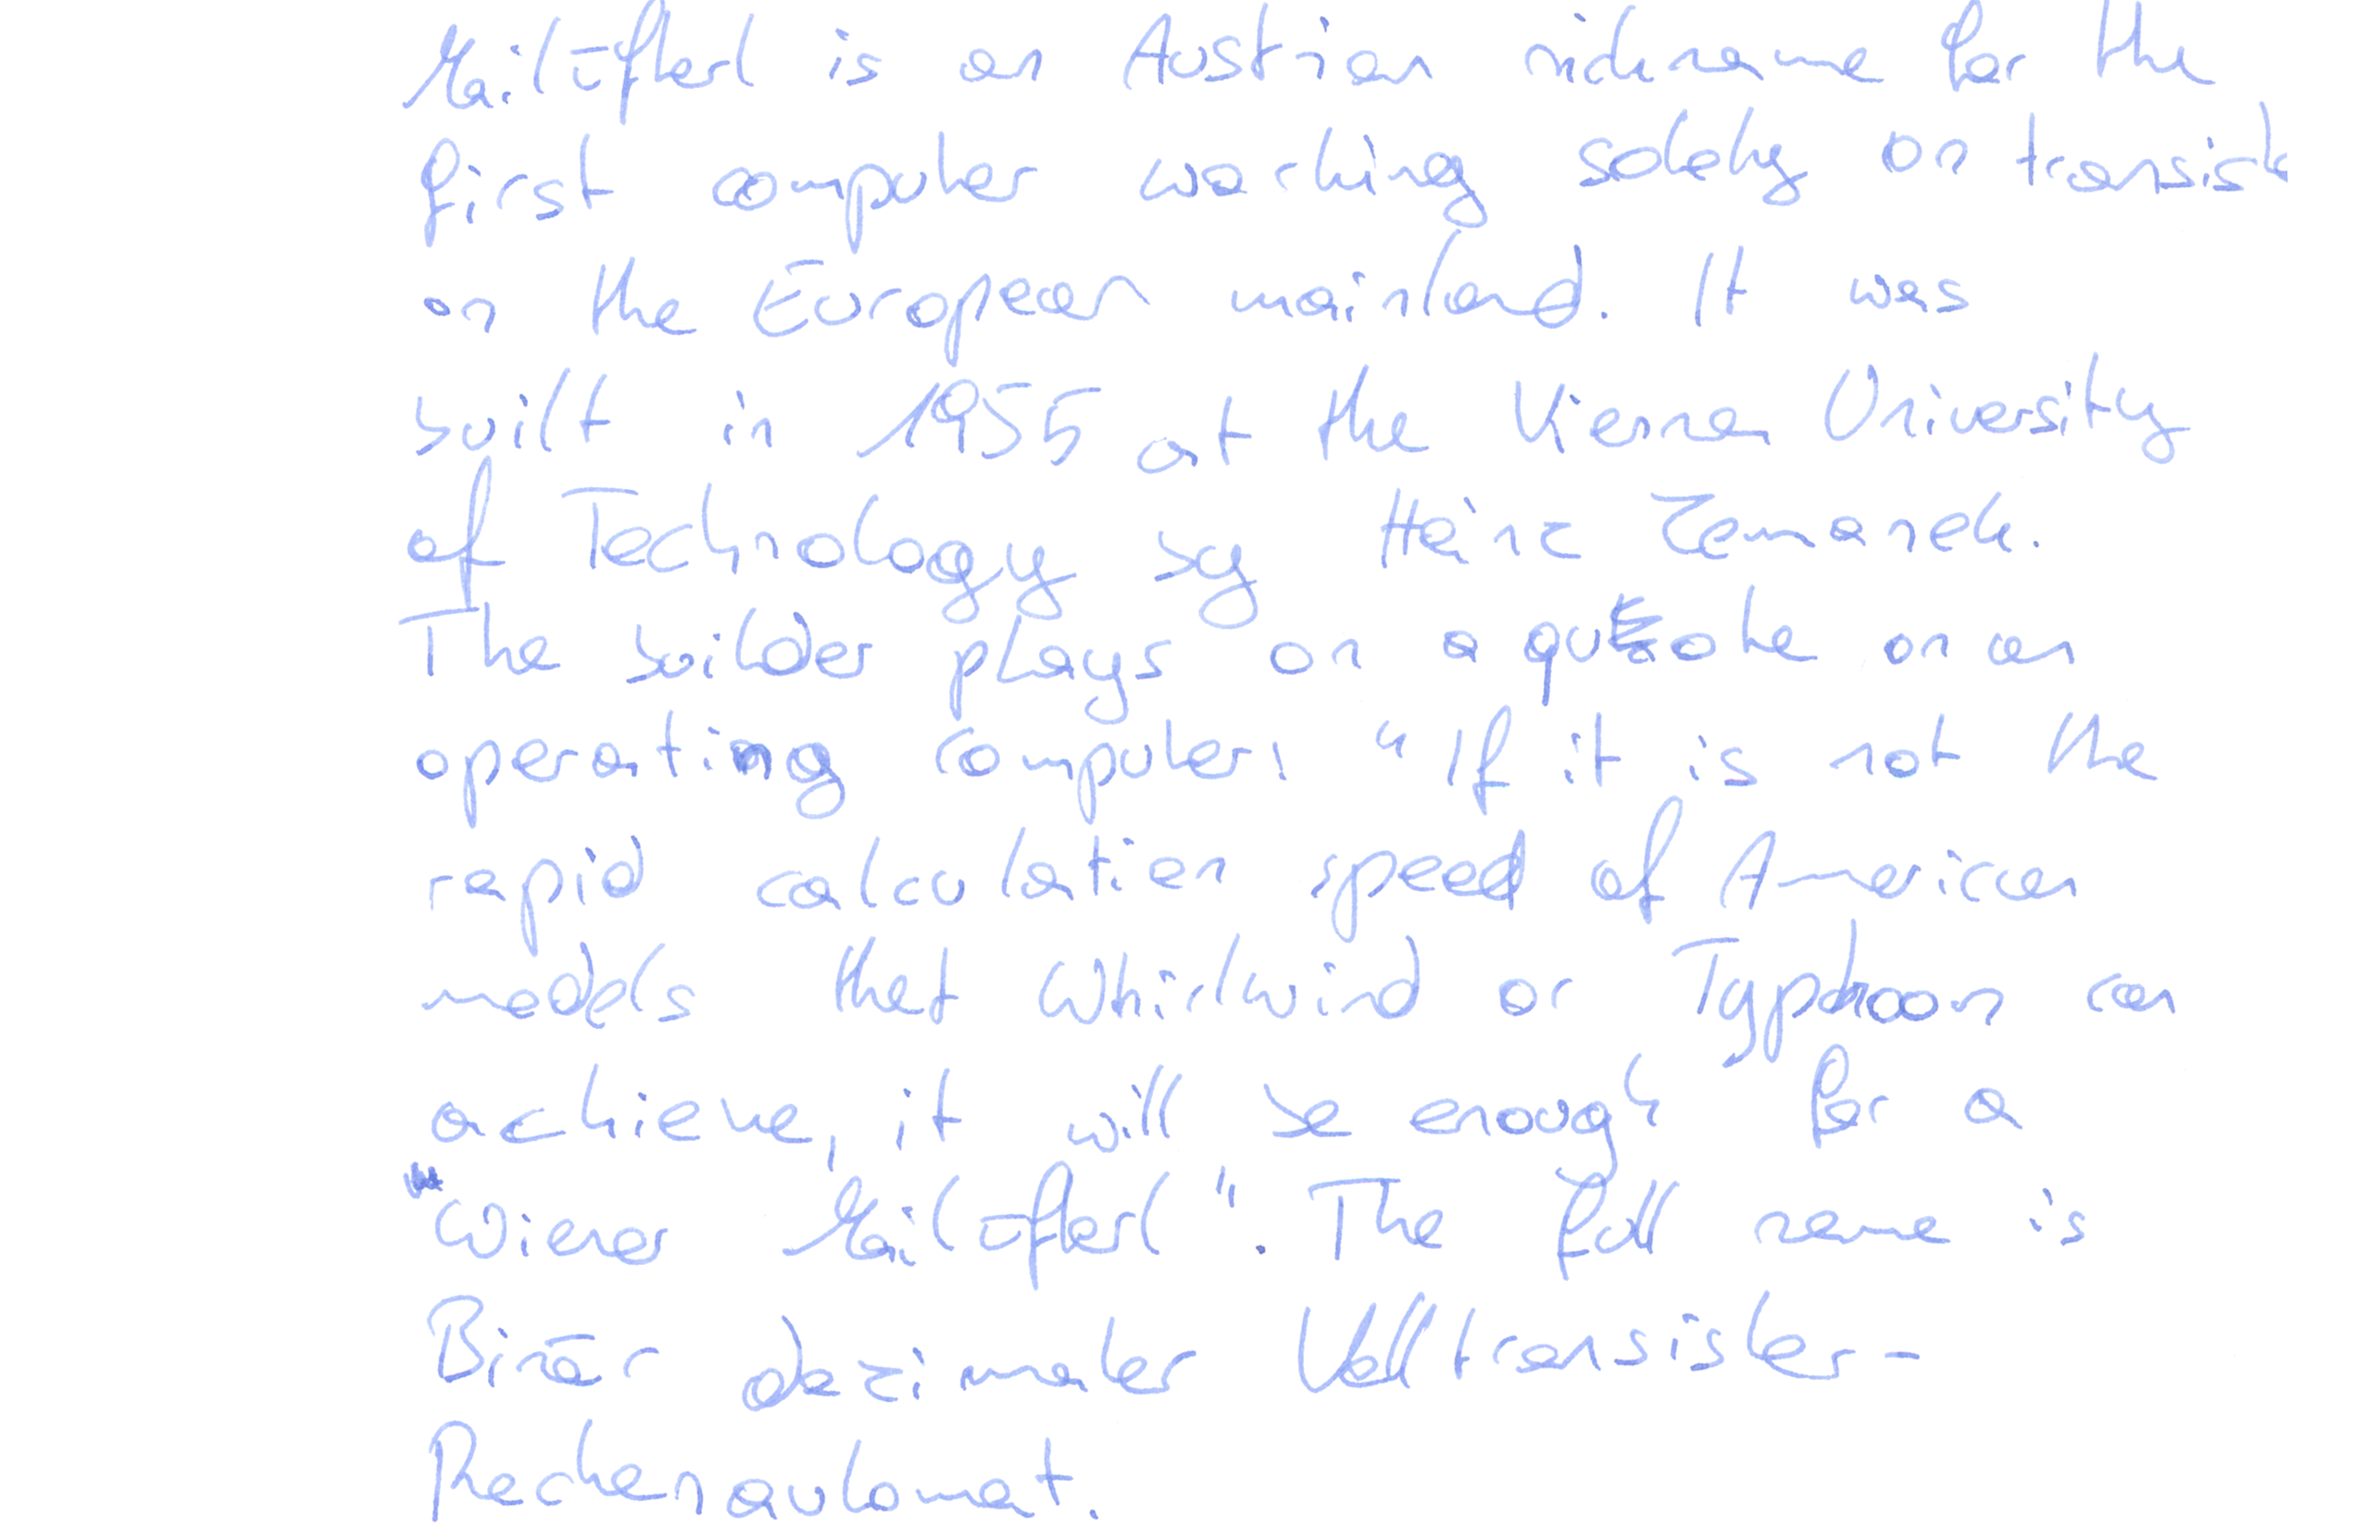 Mailüfterl is an Austrian nickname for the
first computer working solely on transisto
on the European mainland. It was
built in 1955 at the Vienna University
of Technology by Heinz Zemanek.
The builder plays on a quote on an
operating computer: "If it is not the
rapid calculation speed of American
models that Whirlwind or Typhoon can
achieve, it will be enough for a
"Wiener Mailüfterl". The full name is
Binär dezimaler Volltransistor-
Rechenautomat.